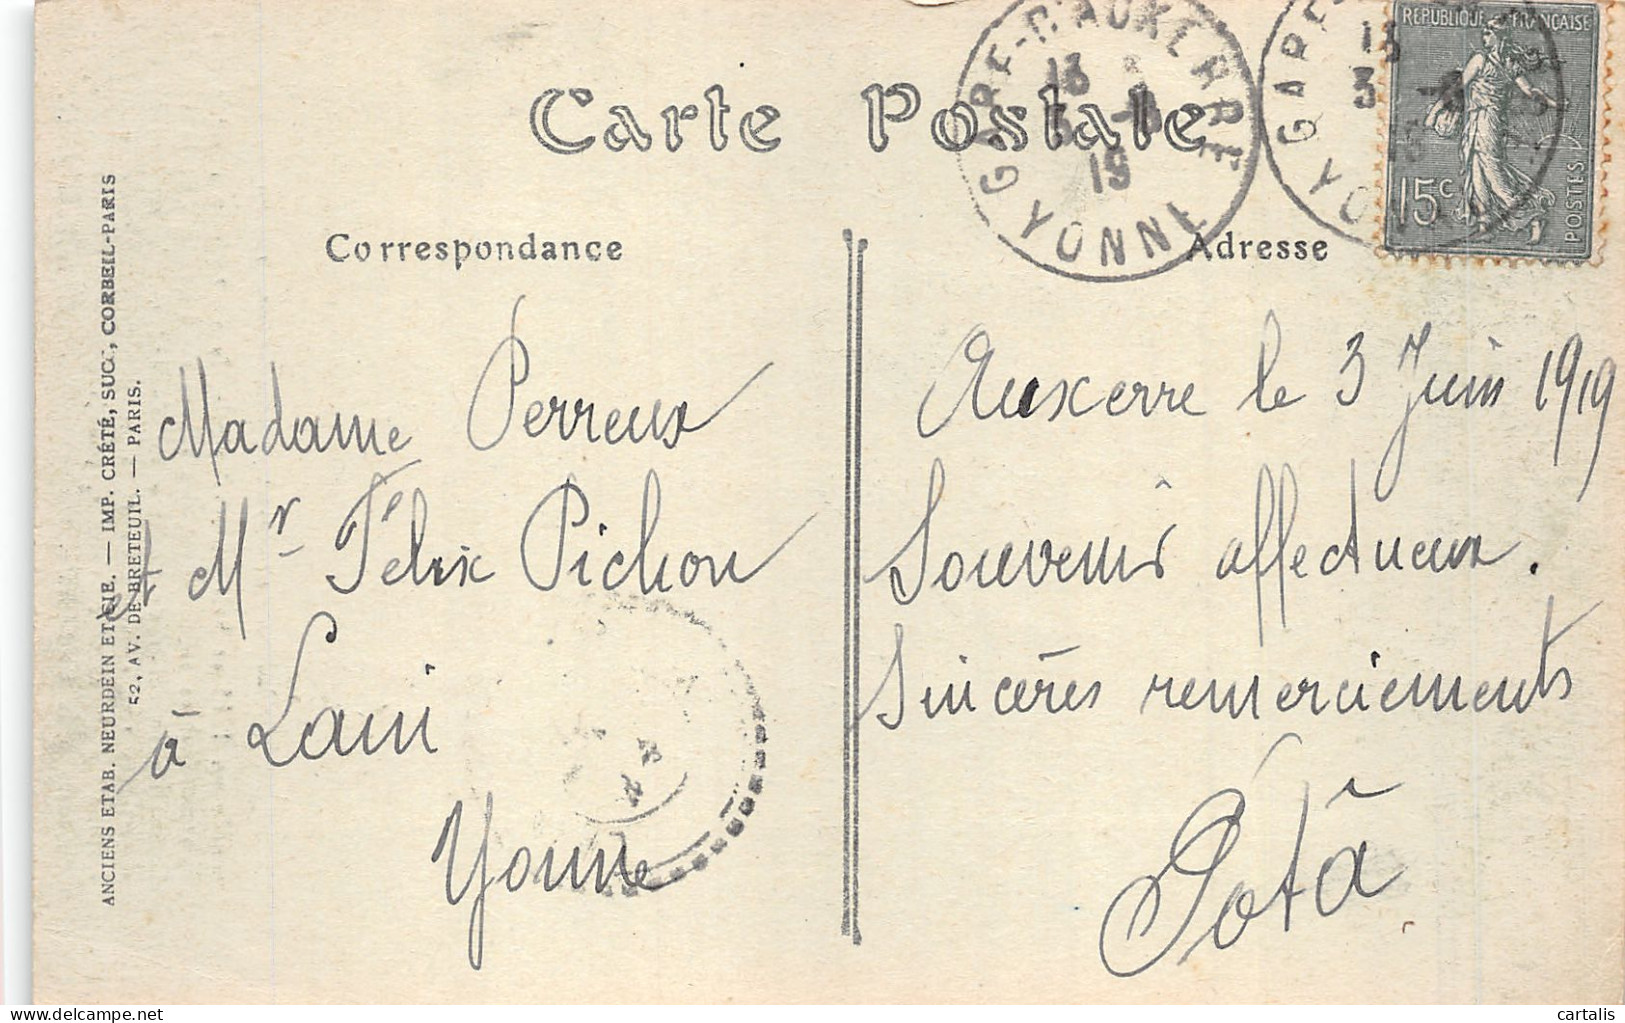 Carte Postale
Correspondance
Adresse
RÉPUBLIQUE FRANÇAISE
15c
POSTES
GARE-D'AUXERRE
13
3 -6
19
YONNE
GARE
13
3 -6
19
YONNE
Madame Perreux
et Mr Félix Pichon
à Lain
Yonne
Auxerre le 3 Juin 1919
Souvenirs affectueux.
Sincères remerciements
ANCIENS ETAB. NEURDEIN ET CIE. — IMP. CRÉTÉ, SUCC., CORBEIL-PARIS
52, AV. DE BRETEUIL. — PARIS.
delcampe.net
cartalis